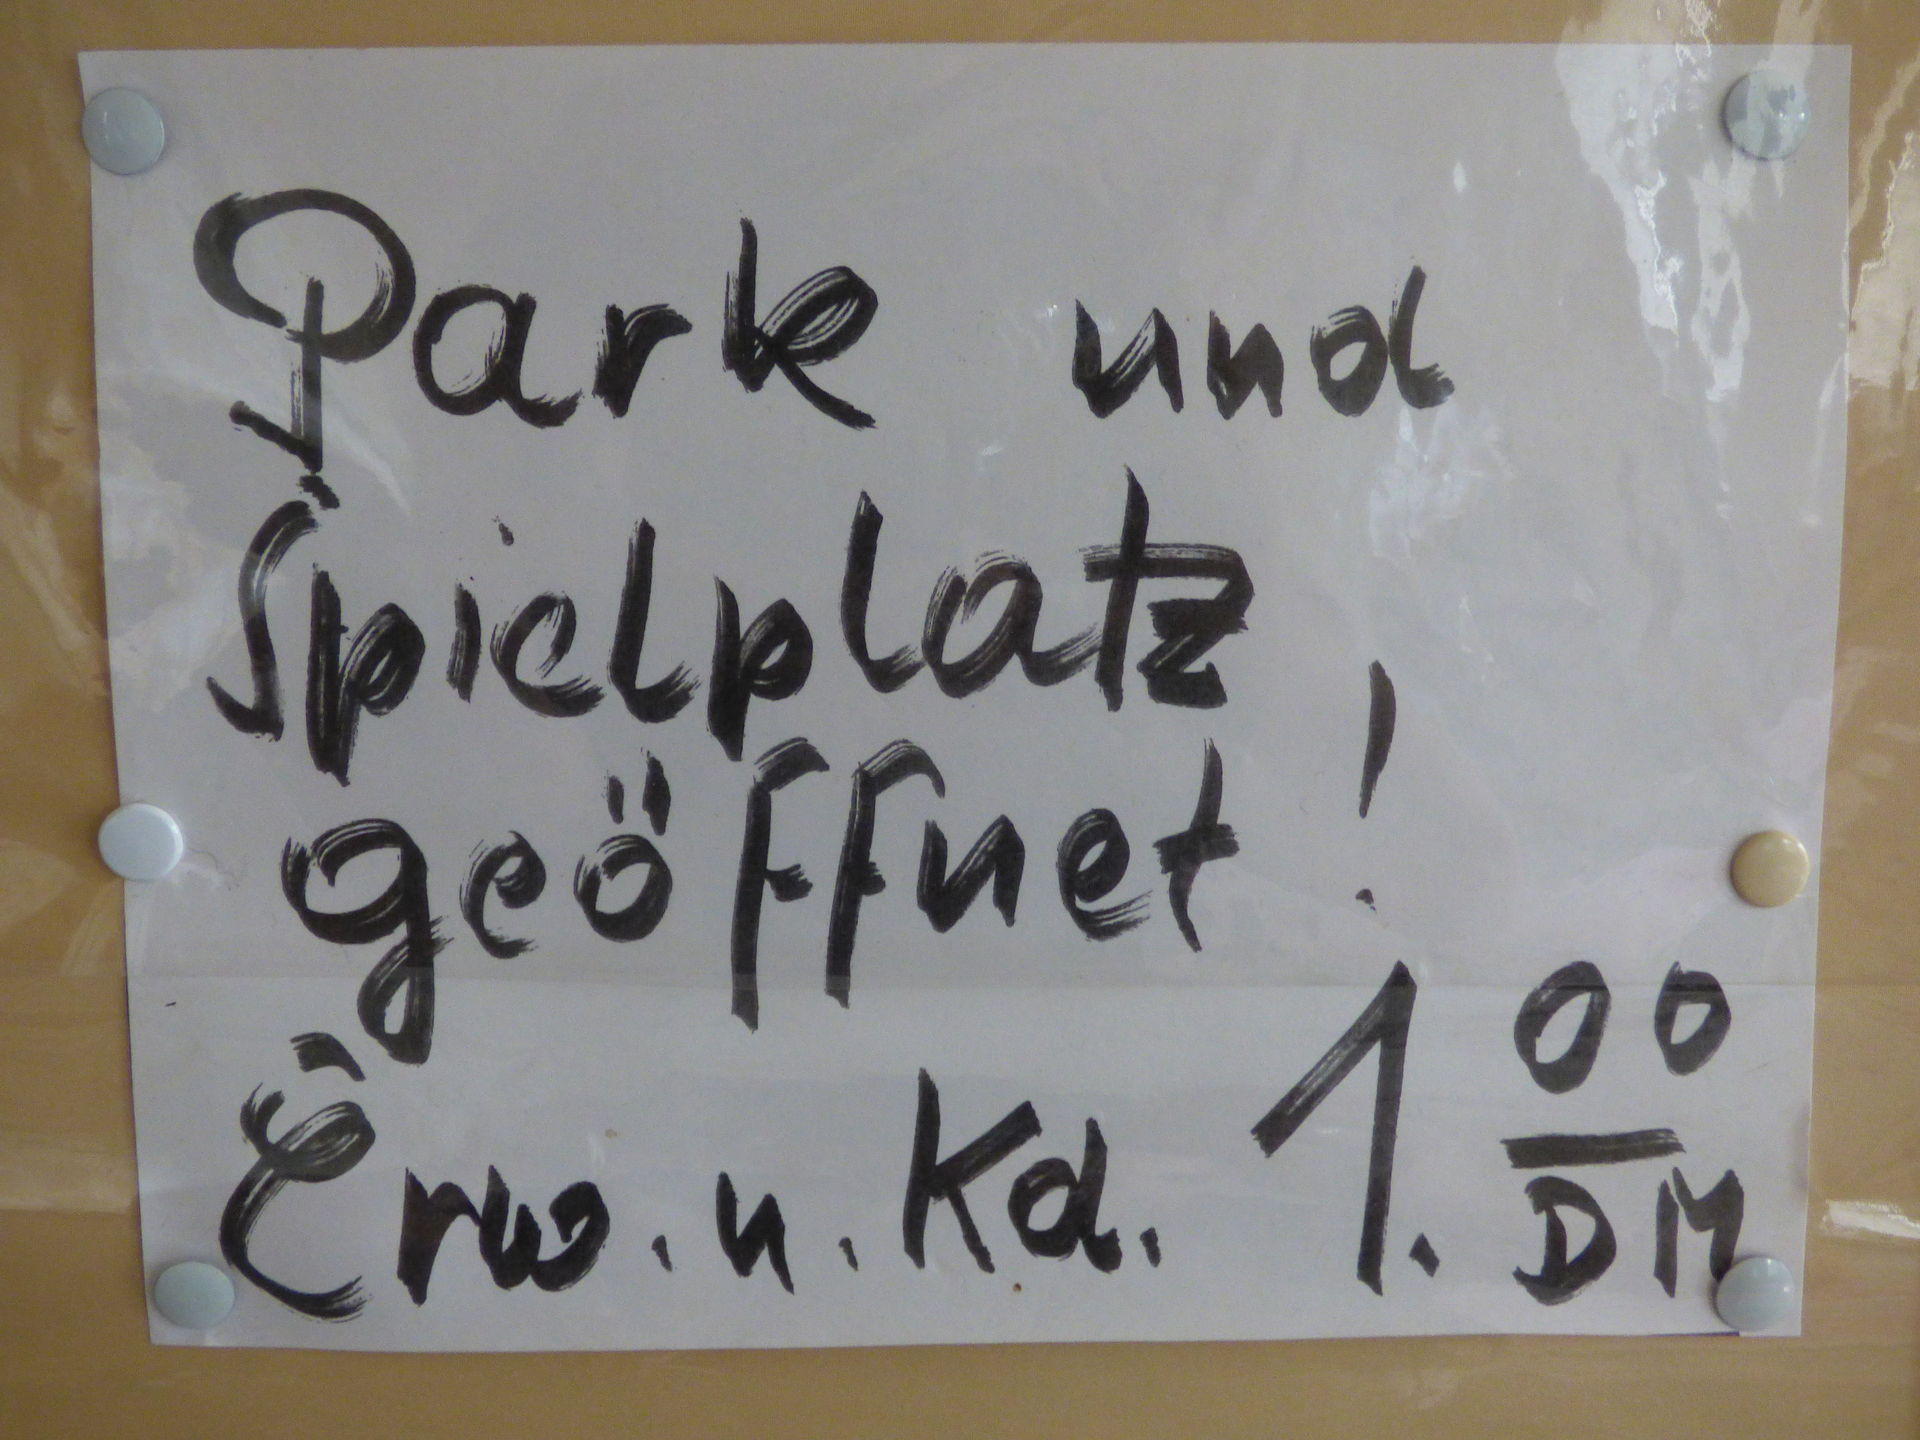 Park und
Spielplatz
geöffnet!
Erw. u. Kd. 1.00 DM